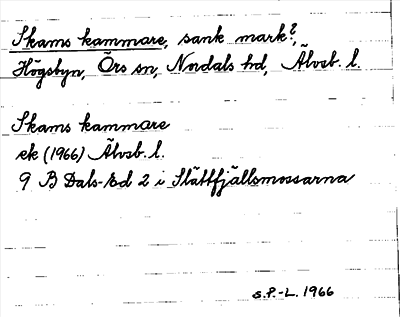 Skams kammare, sank mark?,
Högsbyn, Örs sn, Nordals hd, Älvsb. l.
Skams kammare
ek (1966) Älvsb. l.
9 B Dals-Ed 2 i Slättfjällsmossarna
S.P.-L. 1966